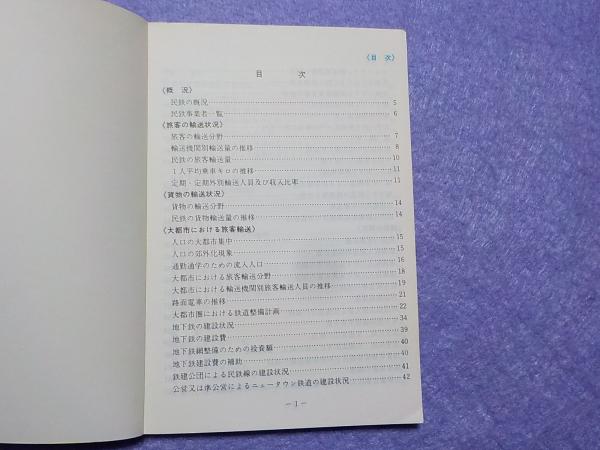 《目 次》
目 次
《概 況》
民鉄の概況……5
民鉄事業者一覧……6
《旅客の輸送状況》
旅客の輸送分野……7
輸送機関別輸送量の推移……8
民鉄の旅客輸送量……10
1人平均乗車キロの推移……11
定期・定期外別輸送人員及び収入比率……11
《貨物の輸送状況》
貨物の輸送分野……14
民鉄の貨物輸送量の推移……14
《大都市における旅客輸送》
人口の大都市集中……15
人口の郊外化現象……15
通勤通学のための流入人口……16
大都市における旅客輸送分野……18
大都市における輸送機関別旅客輸送人員の推移……19
路面電車の推移……21
大都市圏における鉄道整備計画……22
地下鉄の建設状況……34
地下鉄の建設費……39
地下鉄網整備のための投資額……40
地下鉄建設費の補助……40
鉄建公団による民鉄線の建設状況……41
公営又は準公営によるニュータウン鉄道の建設状況……42
－1－